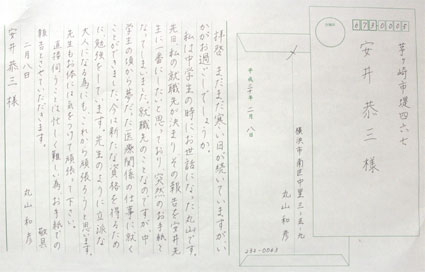 拝啓 まだまだ寒い日が続いていますがい
かがお過ごしでしょうか。
私は中学生の時にお世話になった丸山です。
先日、私の就職先が決まりその報告を安井先
生に一番にしたいと思っており突然のお手紙と
なってしまいました。就職先のことなのですが、中
学生の頃から夢だった医療関係の仕事に就く
ことができました。今は新たな資格を得るため
に勉強しています。先生のように立派な
大人になる為にも、これから頑張ろうと思います。
先生もお体には気をつけて頑張って下さい。
直接伺うことは忙しく難しい為、お手紙での
報告とさせていただきます。
敬具
二月八日
丸山和彦
安井恭三様
〆
平成二十年二月八日
横浜市南区中里三-五-九
丸山和彦
232-0063
茅ヶ崎市堤四六七
安井恭三様